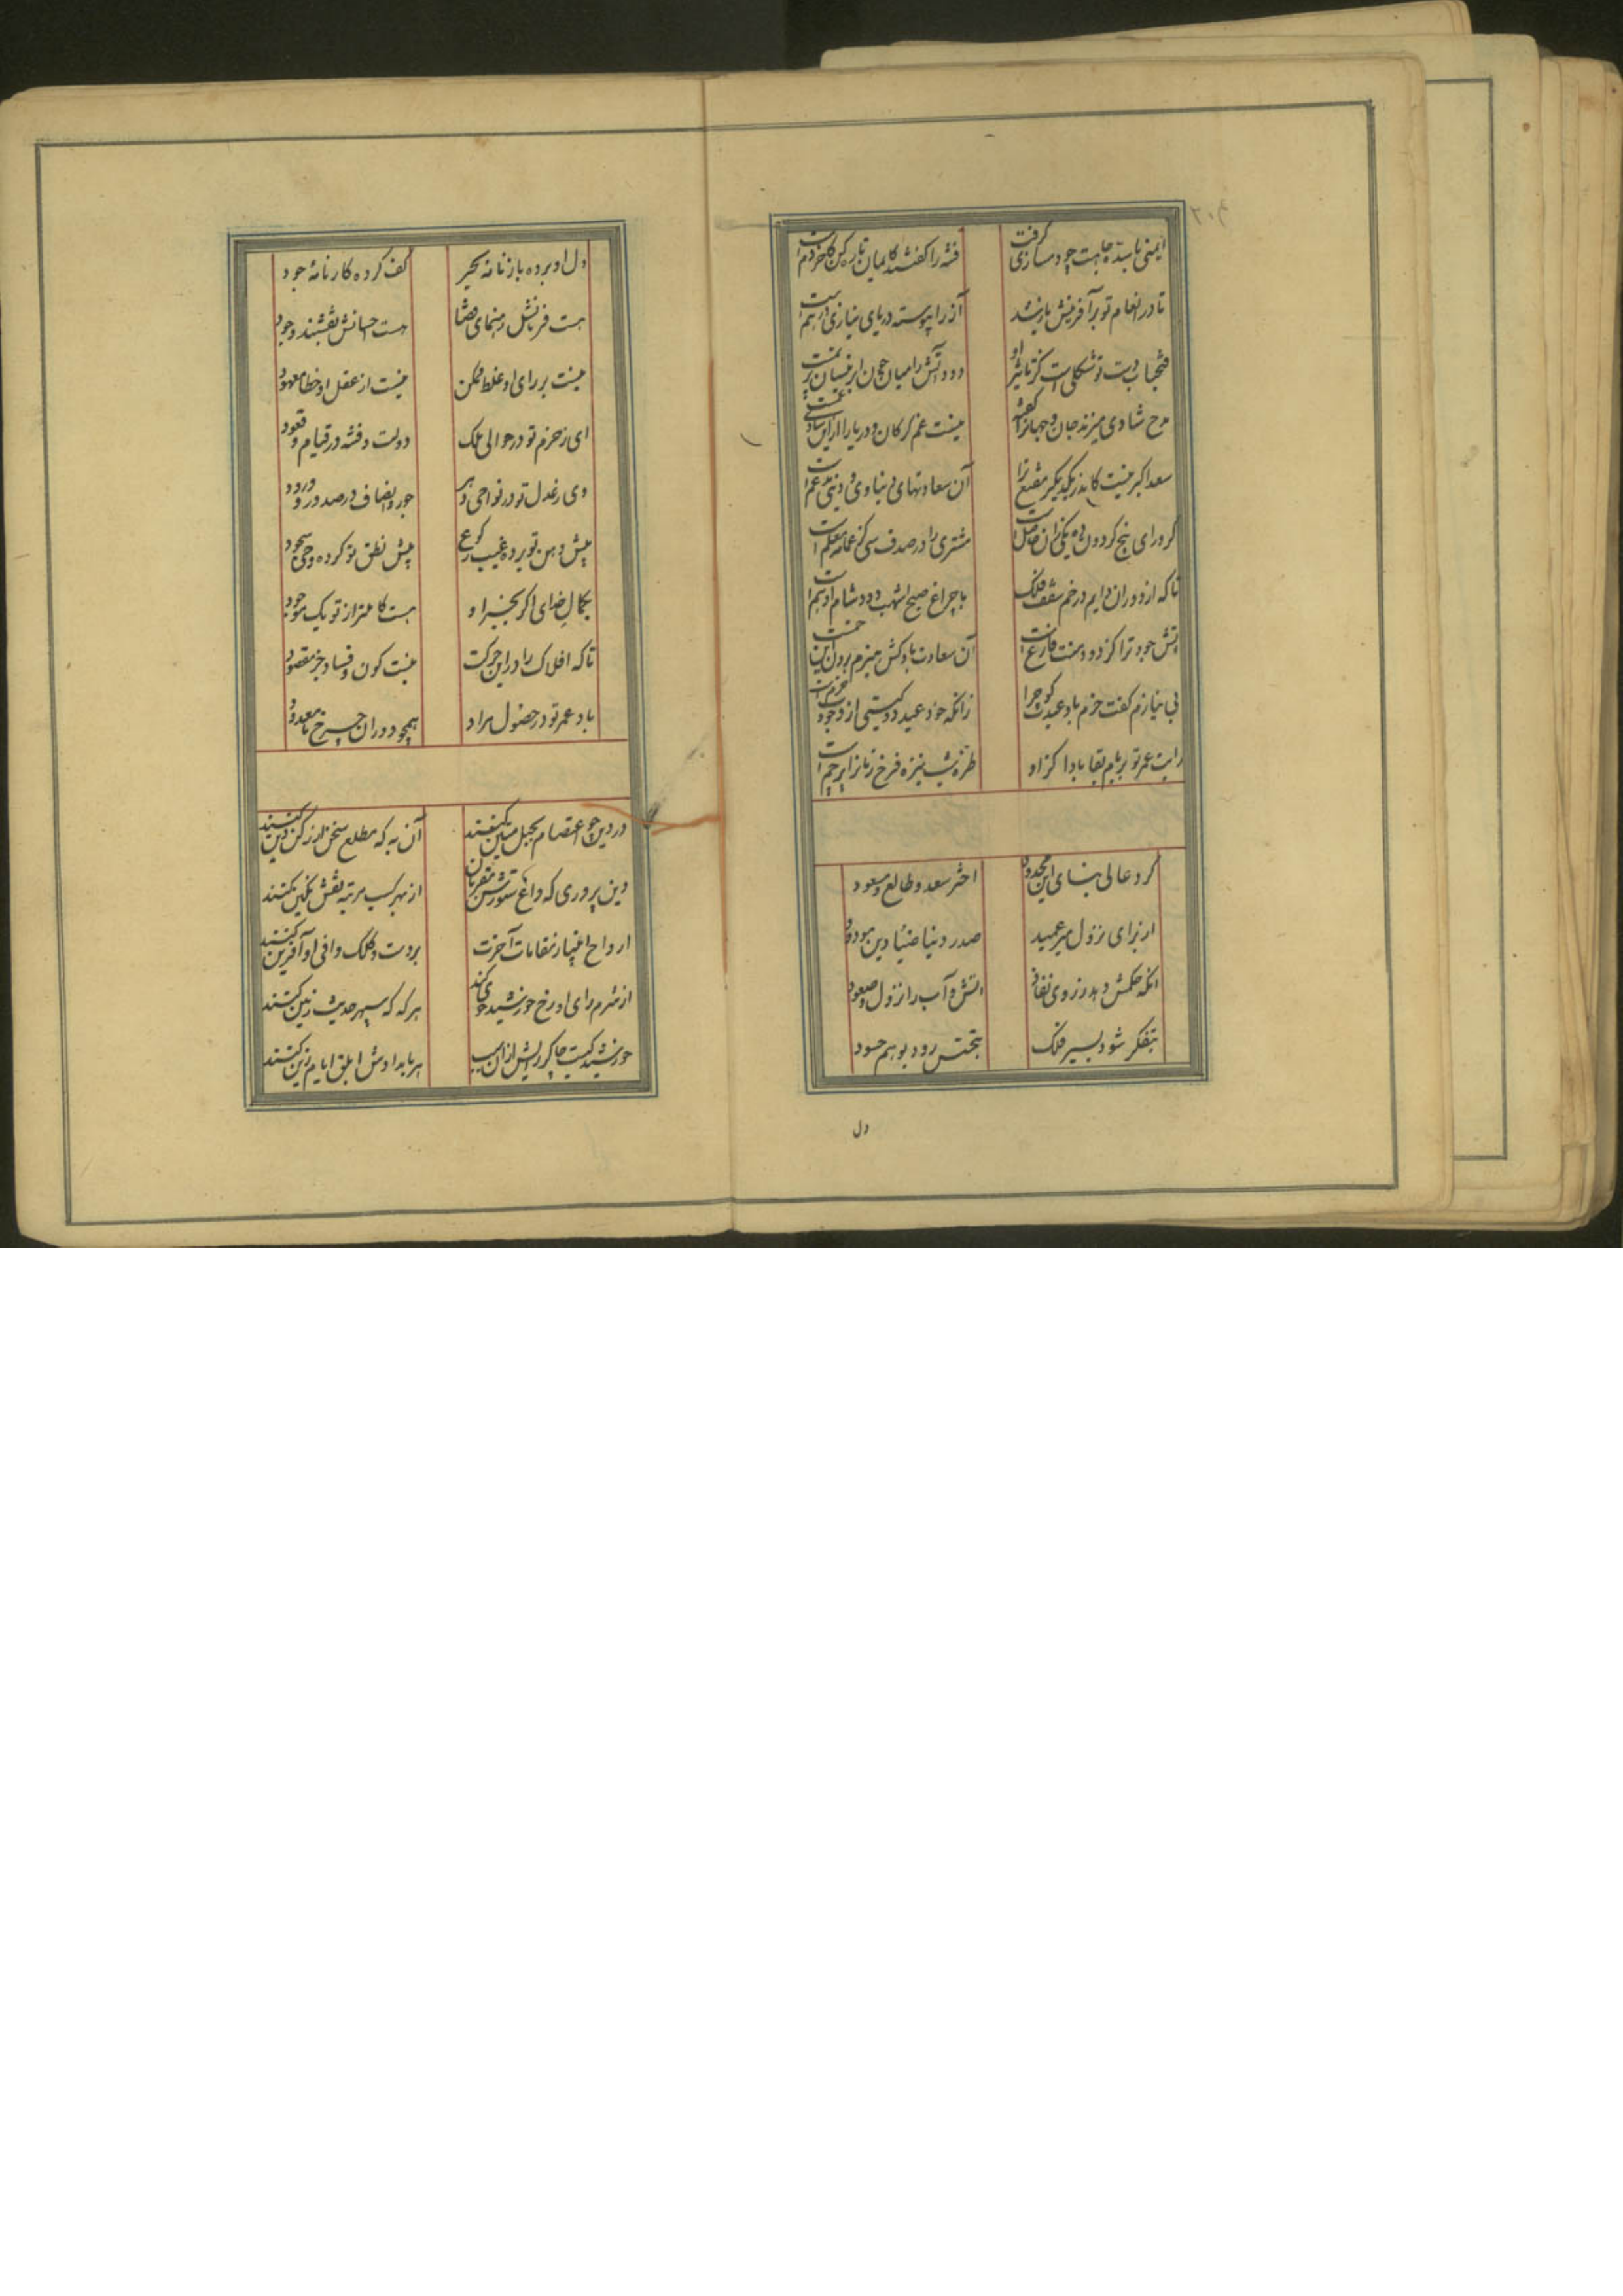 ایمنی تا سده جاهت چو دمسازی گرفت فتنه را گفتند کایمان تازه کن کآخر دمست
تا در انعام تو بر آفرینش باز شد آز را پیوسته در پای نیازی درهمست
مدح شادی میزند جان و جهانرا نیست غم گر کان و دریا را ازین شادی غمست
سعد اکبر نیست کاندر یکدیگر آن سعادتهای دنیاوی و دینی مدغمست
مشتری را در صدف
تا که از دوران دایم در خم سقف فلک با چراغ صبح اشهب دود شام ادهمست
آتش جود ترا کز دود منت فارغست آن سعادت باد کش هیزم
بی نیازم گفت خرم باد عیدت گو چرا زانکه خود عید دو گیتی از وجودت خرمست
رایت عمر تو بر بام بقا بادا کز او طره شب نیزه فرخ زمانرا پرچمست
کرد عالی بنای این محدود اختر سعد و طالع مسعود
از برای نزول میر عمید صدر دنیا ضیاء دین مودود
آنکه حکمش دهد ز روی نفاذ آتش و آب را نزول و صعود
بتفکر شود بسیر فلک بتجسس رود بوهم حسود
دل
دل او برده باز نامه بحر کف کرده کارنامه جود
هست فرمانش رهنمای قضا هست احسانش نقشبند وجود
نیست بر رای او غلط ممکن نیست از عقل او خطا معهود
ای ز حزم تو در حوالی ملک دولت و فتنه در قیام و قعود
وی ز عدل تو در نواحی دهر جور و انصاف در صدور و ورود
پیش ذهن تو برده غیب رکوع پیش نطق تو کرده وحی سجود
بکمال خدای اگر بجز او هست کاملتر از تو یک موجود
تا که افلاک را درین حرکت نیست کون و فساد جز مقصود
باد عمر تو در حصول مراد همچو دوران چرخ نامعدود
در دین چو اعتصام بحبل متین کنند آن به که مطلع سخن از رکن دین کنند
دین پروری که داغ ستورش مقربان از بهر کسب مرتبه نقش نگین کنند
ارواح انبیا ز مقامات آخرت بر دست و کلک وافی او آفرین کنند
از شرم رای او رخ خورشید خوی کند هر گه که سپهر حدیث زمین کنند
خورشید کیست چاکر رایش از آن سبب هر بامدادش ابلق ایام زین کنند